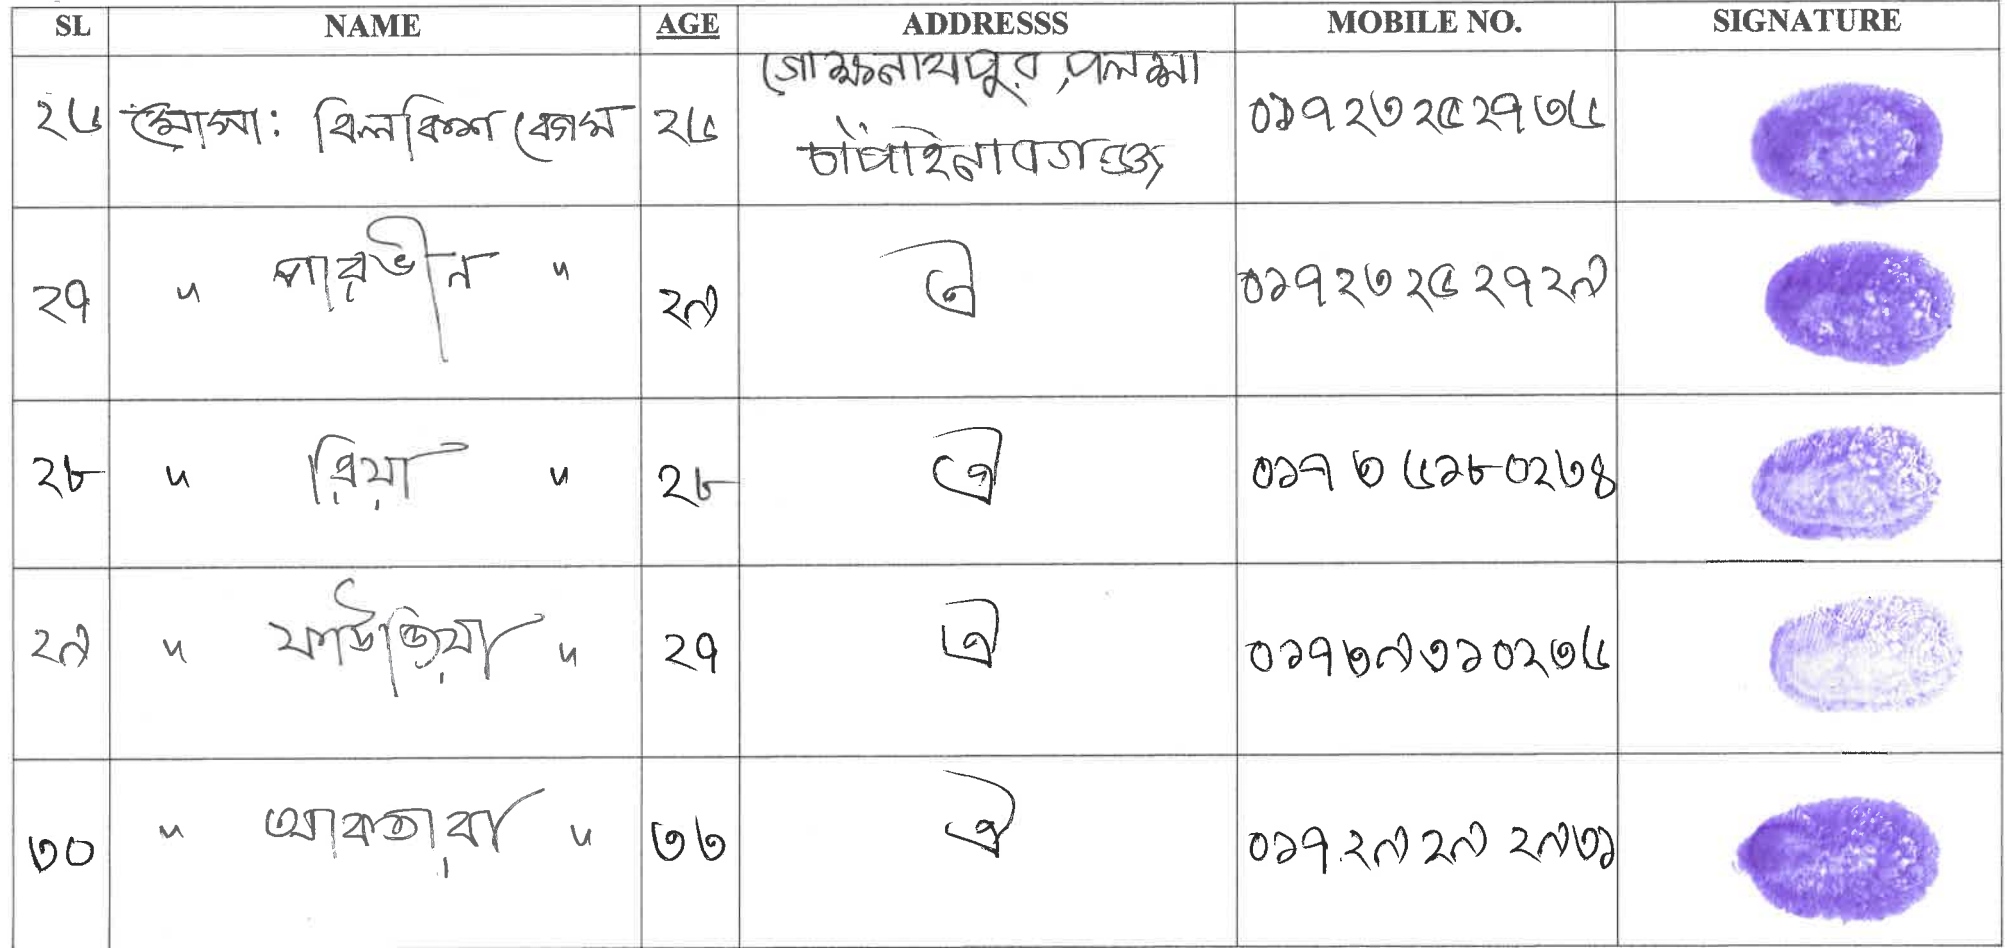 SL NAME AGE ADDRESSS MOBILE NO. SIGNATURE
২৬ মোসা: বিলকিশ বেগম ২৬ গোমস্তাপুর, পলশা
চাঁপাইনাবগঞ্জ ০১৭২৩২৫২৭৩৬
২৭ " পারভীন " ২৯ ঐ ০১৭২৩২৫২৭২৯
২৮ " রিয়া " ২৮ ঐ ০১৭৩৬১৮০২৩৪
২৯ " ফাউজিয়া " ২৭ ঐ ০১৭৩৯৩১০২৩৬
৩০ " আকতারা " ৩৩ ঐ ০১৭২৯২৯২৯৩১